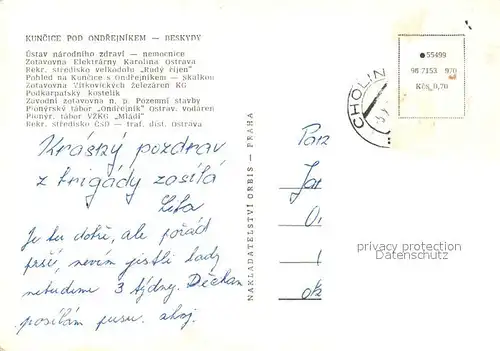 KUNČICE POD ONDŘEJNÍKEM — BESKYDY
Ústav národního zdraví — nemocnice
Zotavovna Elektrárny Karolina Ostrava
Rekr. středisko velkodolu „Rudý říjen"
Pohled na Kunčice s Ondřejníkem — skalkou
Zotavovna Vítkovických železáren KG
Podkarpatský kostelík
Závodní zotavovna n. p. Pozemní stavby
Pionýrský tábor „Ondřejník" Ostrav. vodáren
Pionýr. tábor VŽKG "Mládí"
Rekr. středisko ČSD — traf. dist. ostrava
Krásný pozdrav
z brigády zasílá
Je tu dobře, ale pořád
prší, nevím jestli tady
nebudeme 3 týdny. Děckám
posílám pusu. ahoj.
NAKLADATELSTVÍ ORBIS — PRAHA
CHOLIN
55499
98 7153 970
Kčs 0,70
privacy protection
Datenschutz